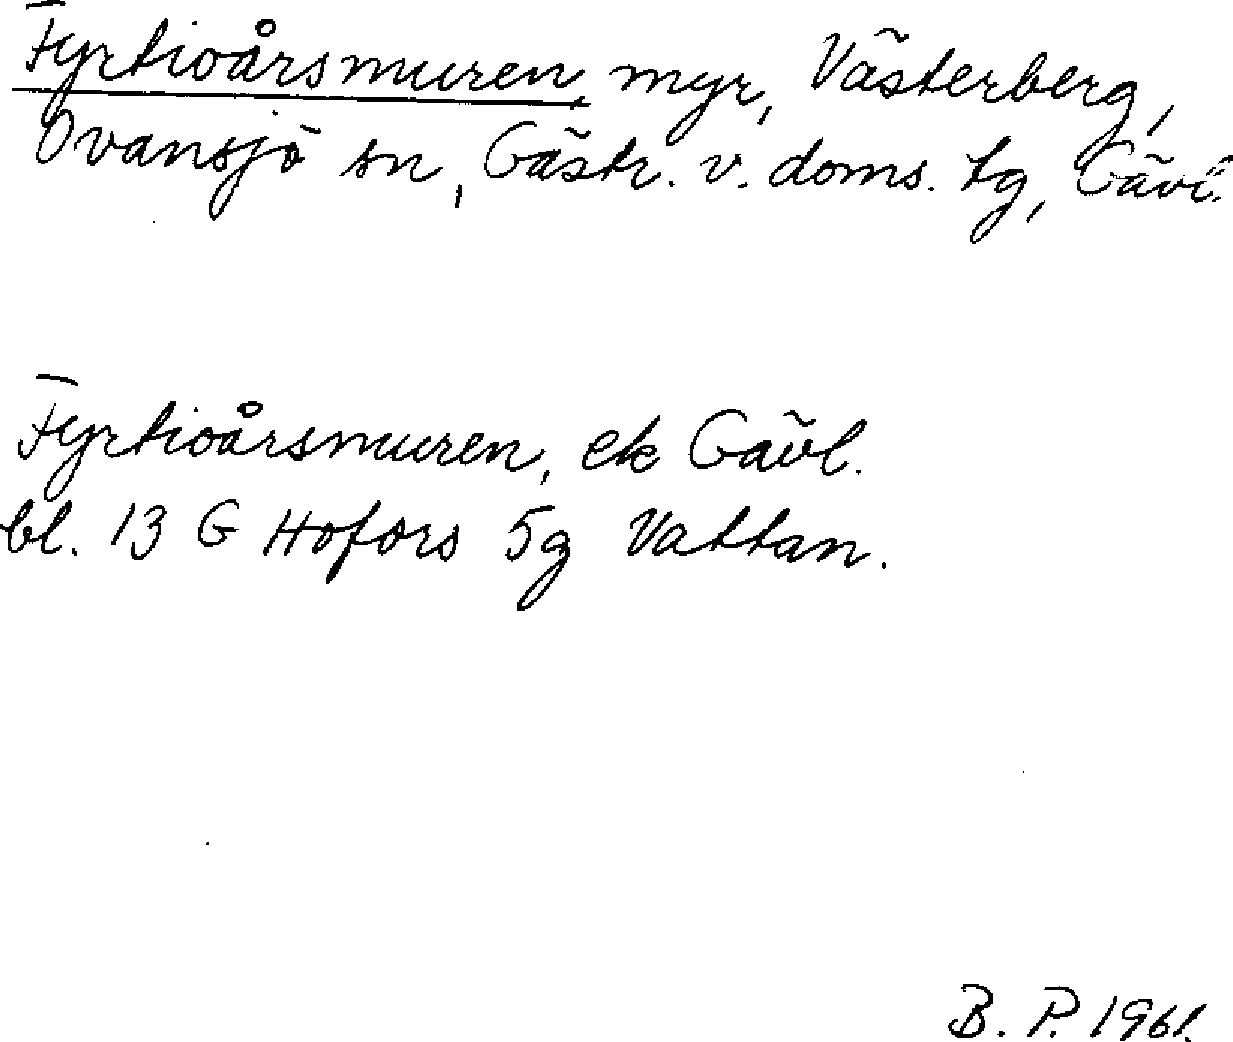 Fyrtioårsmuren, myr, Västerberg,
Ovansjö sn, Gästr. v. doms. tg, Gävl.
Fyrtioårsmuren, ek Gävl.
bl. 13 G Hofors 5g Vattan.
B. P. 1961.